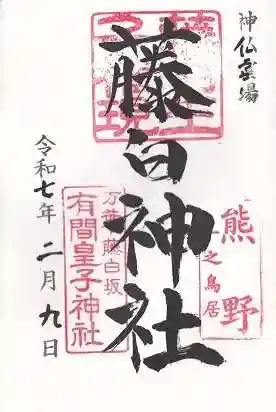 神仏霊場
熊野
一之鳥居
藤白神社
万葉藤白坂
有間皇子神社
令和七年二月九日